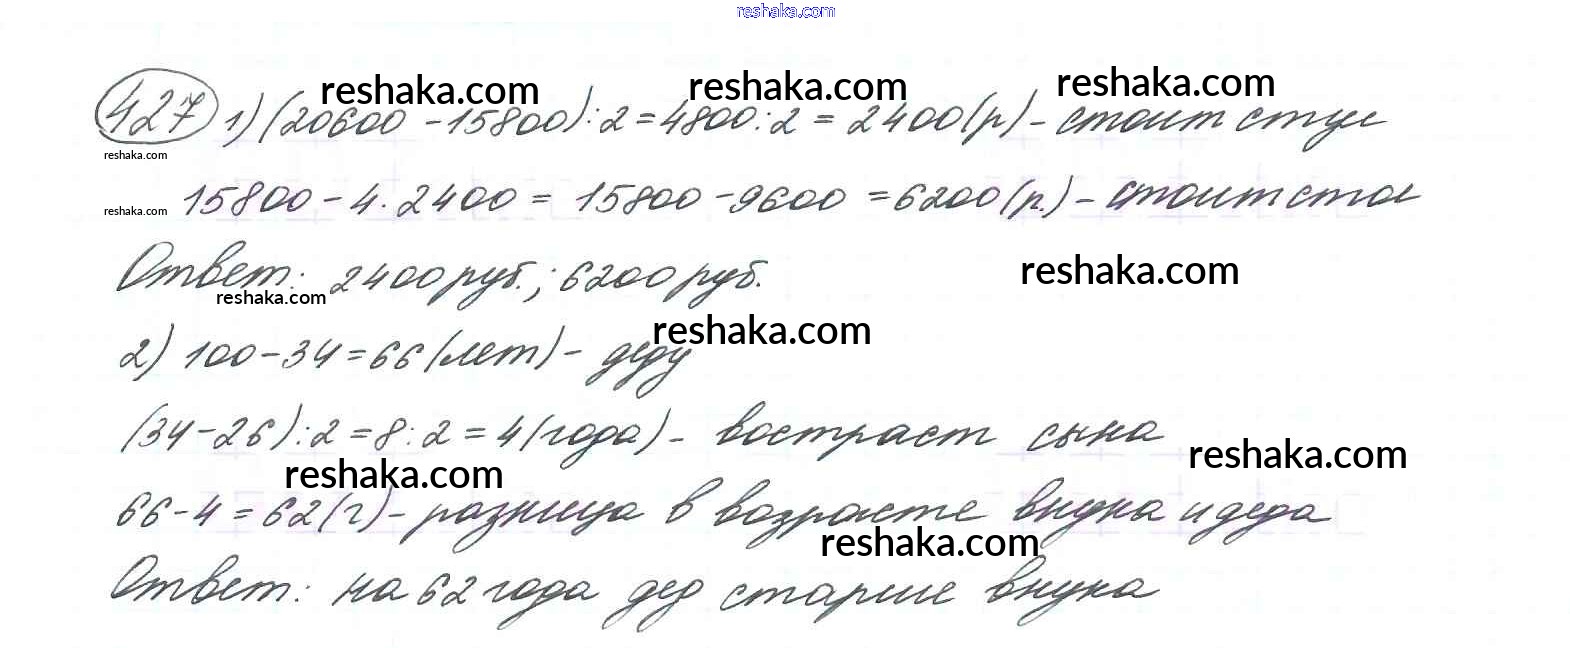 reshaka.com
reshaka.com reshaka.com reshaka.com
427 1) (20600 - 15800) : 2 = 4800 : 2 = 2400 (р) - стоит стул
reshaka.com
reshaka.com 15800 - 4 · 2400 = 15800 - 9600 = 6200 (р.) - стоит стол
Ответ: 2400 руб.; 6200 руб. reshaka.com
reshaka.com
reshaka.com
2) 100 - 34 = 66 (лет) - деду
(34 - 26) : 2 = 8 : 2 = 4 (года) - востраст сына
reshaka.com reshaka.com
66 - 4 = 62 (г) - разница в возрасте внука и деда
reshaka.com
Ответ: на 62 года дед старше внука